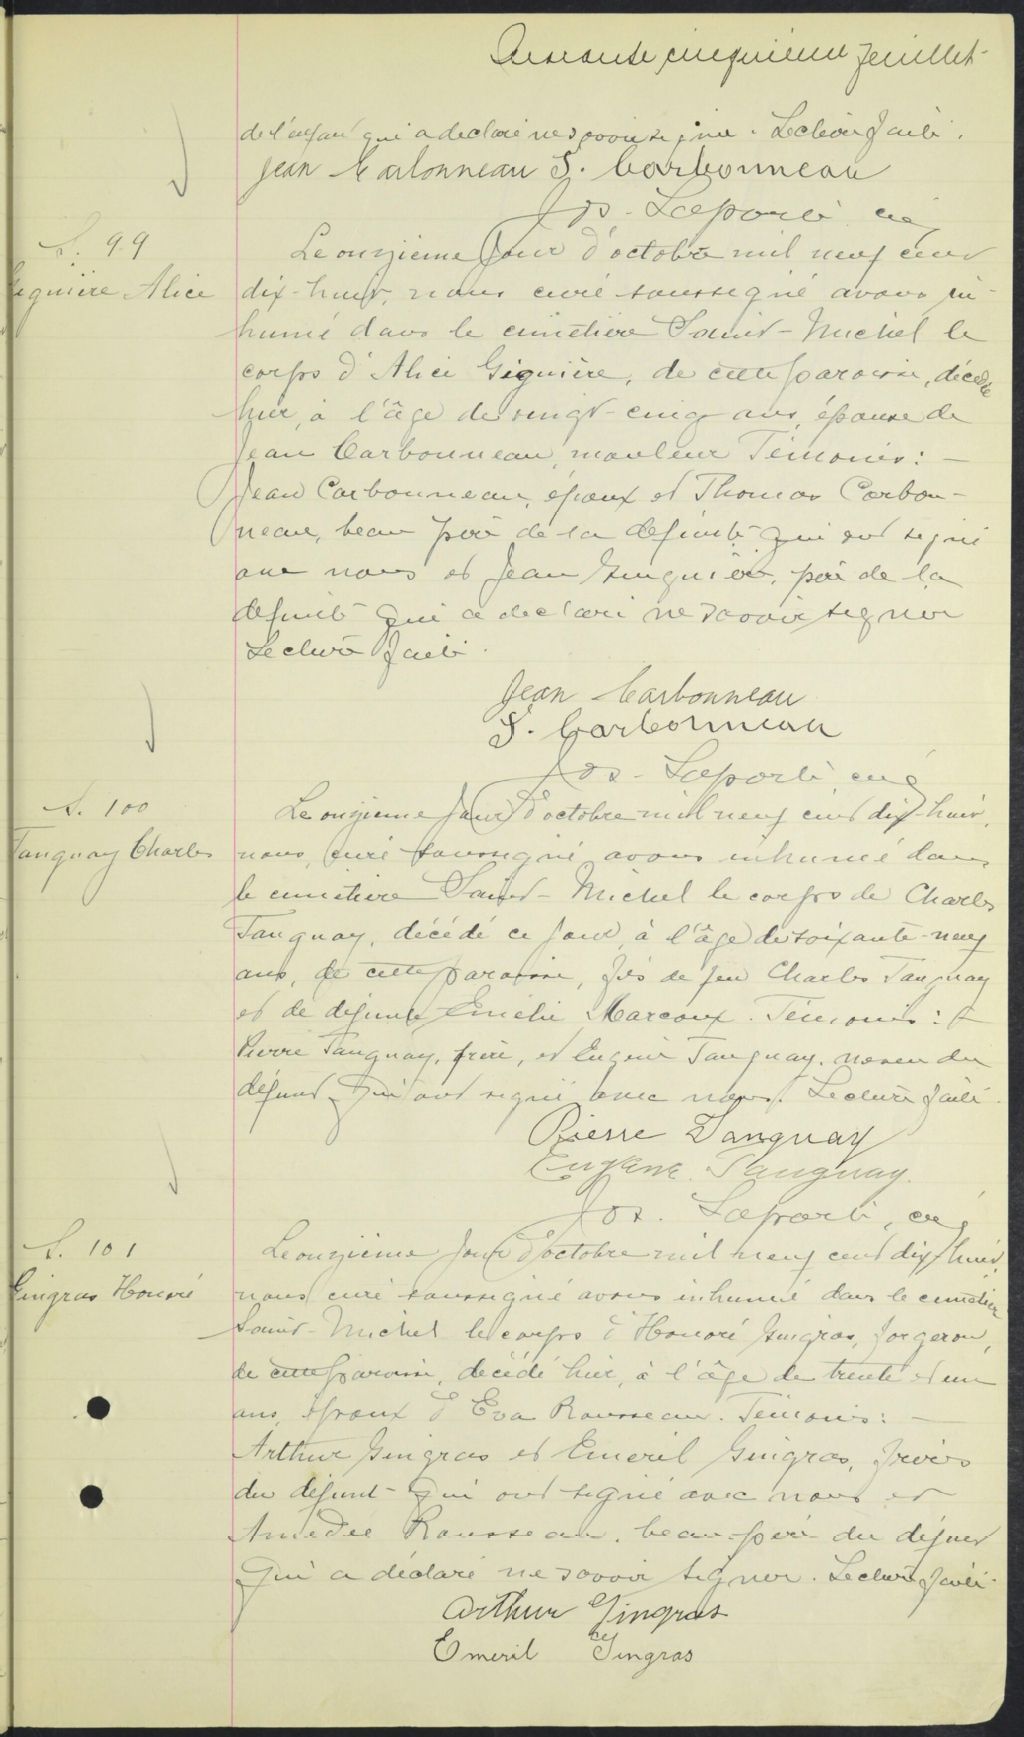 Quarante cinquième feuillet
de l'enfant qui a déclaré ne savoir signer. Lecture faite.
Jean Carbonneau T. Carbonneau
Jos. Laporte, cé
S. 99
Giguière Alice
Le onzième jour d'octobre mil neuf cent
dix-huit, nous curé soussigné avons in-
humé dans le cimetière Saint-Michel le
corps d'Alice Giguière, de cette paroisse, décédée
hier, à l'âge de vingt-cinq ans, épouse de
Jean Carbonneau, mouleur. Témoins: -
Jean Carbonneau, époux et Thomas Carbon-
neau, beau père de la défunte qui ont signé
avec nous et Jean Giguière, père de la
défunte qui a déclaré ne savoir signer
Lecture faite.
Jean Carbonneau
T. Carbonneau
Jos. Laporte, curé
S. 100
Tanguay Charles
Le onzième jour d'octobre mil neuf cent dix-huit,
nous, curé soussigné avons inhumé dans
le cimetière Saint-Michel le corps de Charles
Tanguay, décédé ce jour, à l'âge de soixante-neuf
ans, de cette paroisse, fils de feu Charles Tanguay
et de défunte Emélie Marcoux. Témoins: -
Pierre Tanguay, frère, et Eugène Tanguay, neveu du
défunt qui ont signé avec nous. Lecture faite.
Pierre Tanguay
Eugène Tanguay.
Jos. Laporte, cé
S. 101
Gingras Honoré
Le onzième jour d'octobre mil neuf cent dix-huit,
nous curé soussigné avons inhumé dans le cimetière
Saint-Michel le corps d'Honoré Gingras, forgeron,
de cette paroisse, décédé hier, à l'âge de trente et un
ans, époux d'Eva Rousseau. Témoins: -
Arthur Gingras et Emeril Gingras, frères
du défunt qui ont signé avec nous et
Amédée Rousseau, beau-père du défunt
qui a déclaré ne savoir signer. Lecture faite.
Arthur Gingras
Emeril Gingras